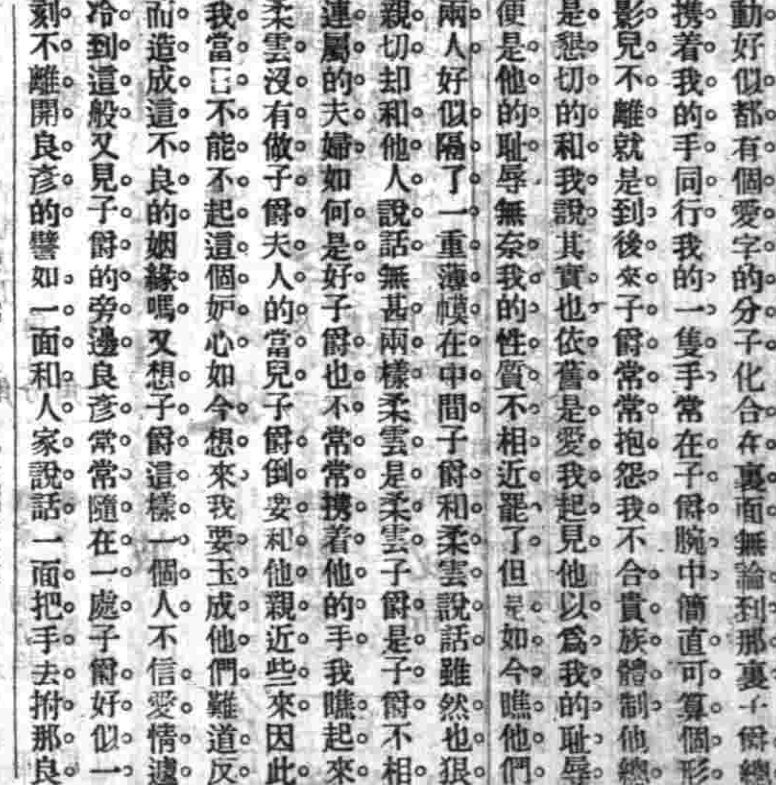 動好似都有個愛字的分子化合在裏面無論到那裏子爵總
携着我的手同行我的一隻手常在子爵腕中簡直可算個形
影兒不離就是到後來子爵常常抱怨我不合貴族體制他總
是懇切的和我說其實也依舊是愛我起見他以爲我的耻辱
便是他的耻辱無奈我的性質不相近罷了但是如今瞧他們
兩人好似隔了一重薄幙在中間子爵和柔雲說話雖然也狠
親切却和他人說話無甚兩樣柔雲是柔雲子爵是子爵不相
連屬的夫婦如何是好子爵也不常常携着他的手我瞧起來
柔雲沒有做子爵夫人的當兒子爵倒要和他親近些來因此
我當日不能不起這個妒心如今想來我要玉成他們難道反
而造成這不良的姻緣嗎又想子爵這樣一個人不信愛情遽
冷到這般又見子爵的旁邊良彥常常隨在一處子爵好似一
刻不離開良彥的譬如一面和人家說話一面把手去拊那良